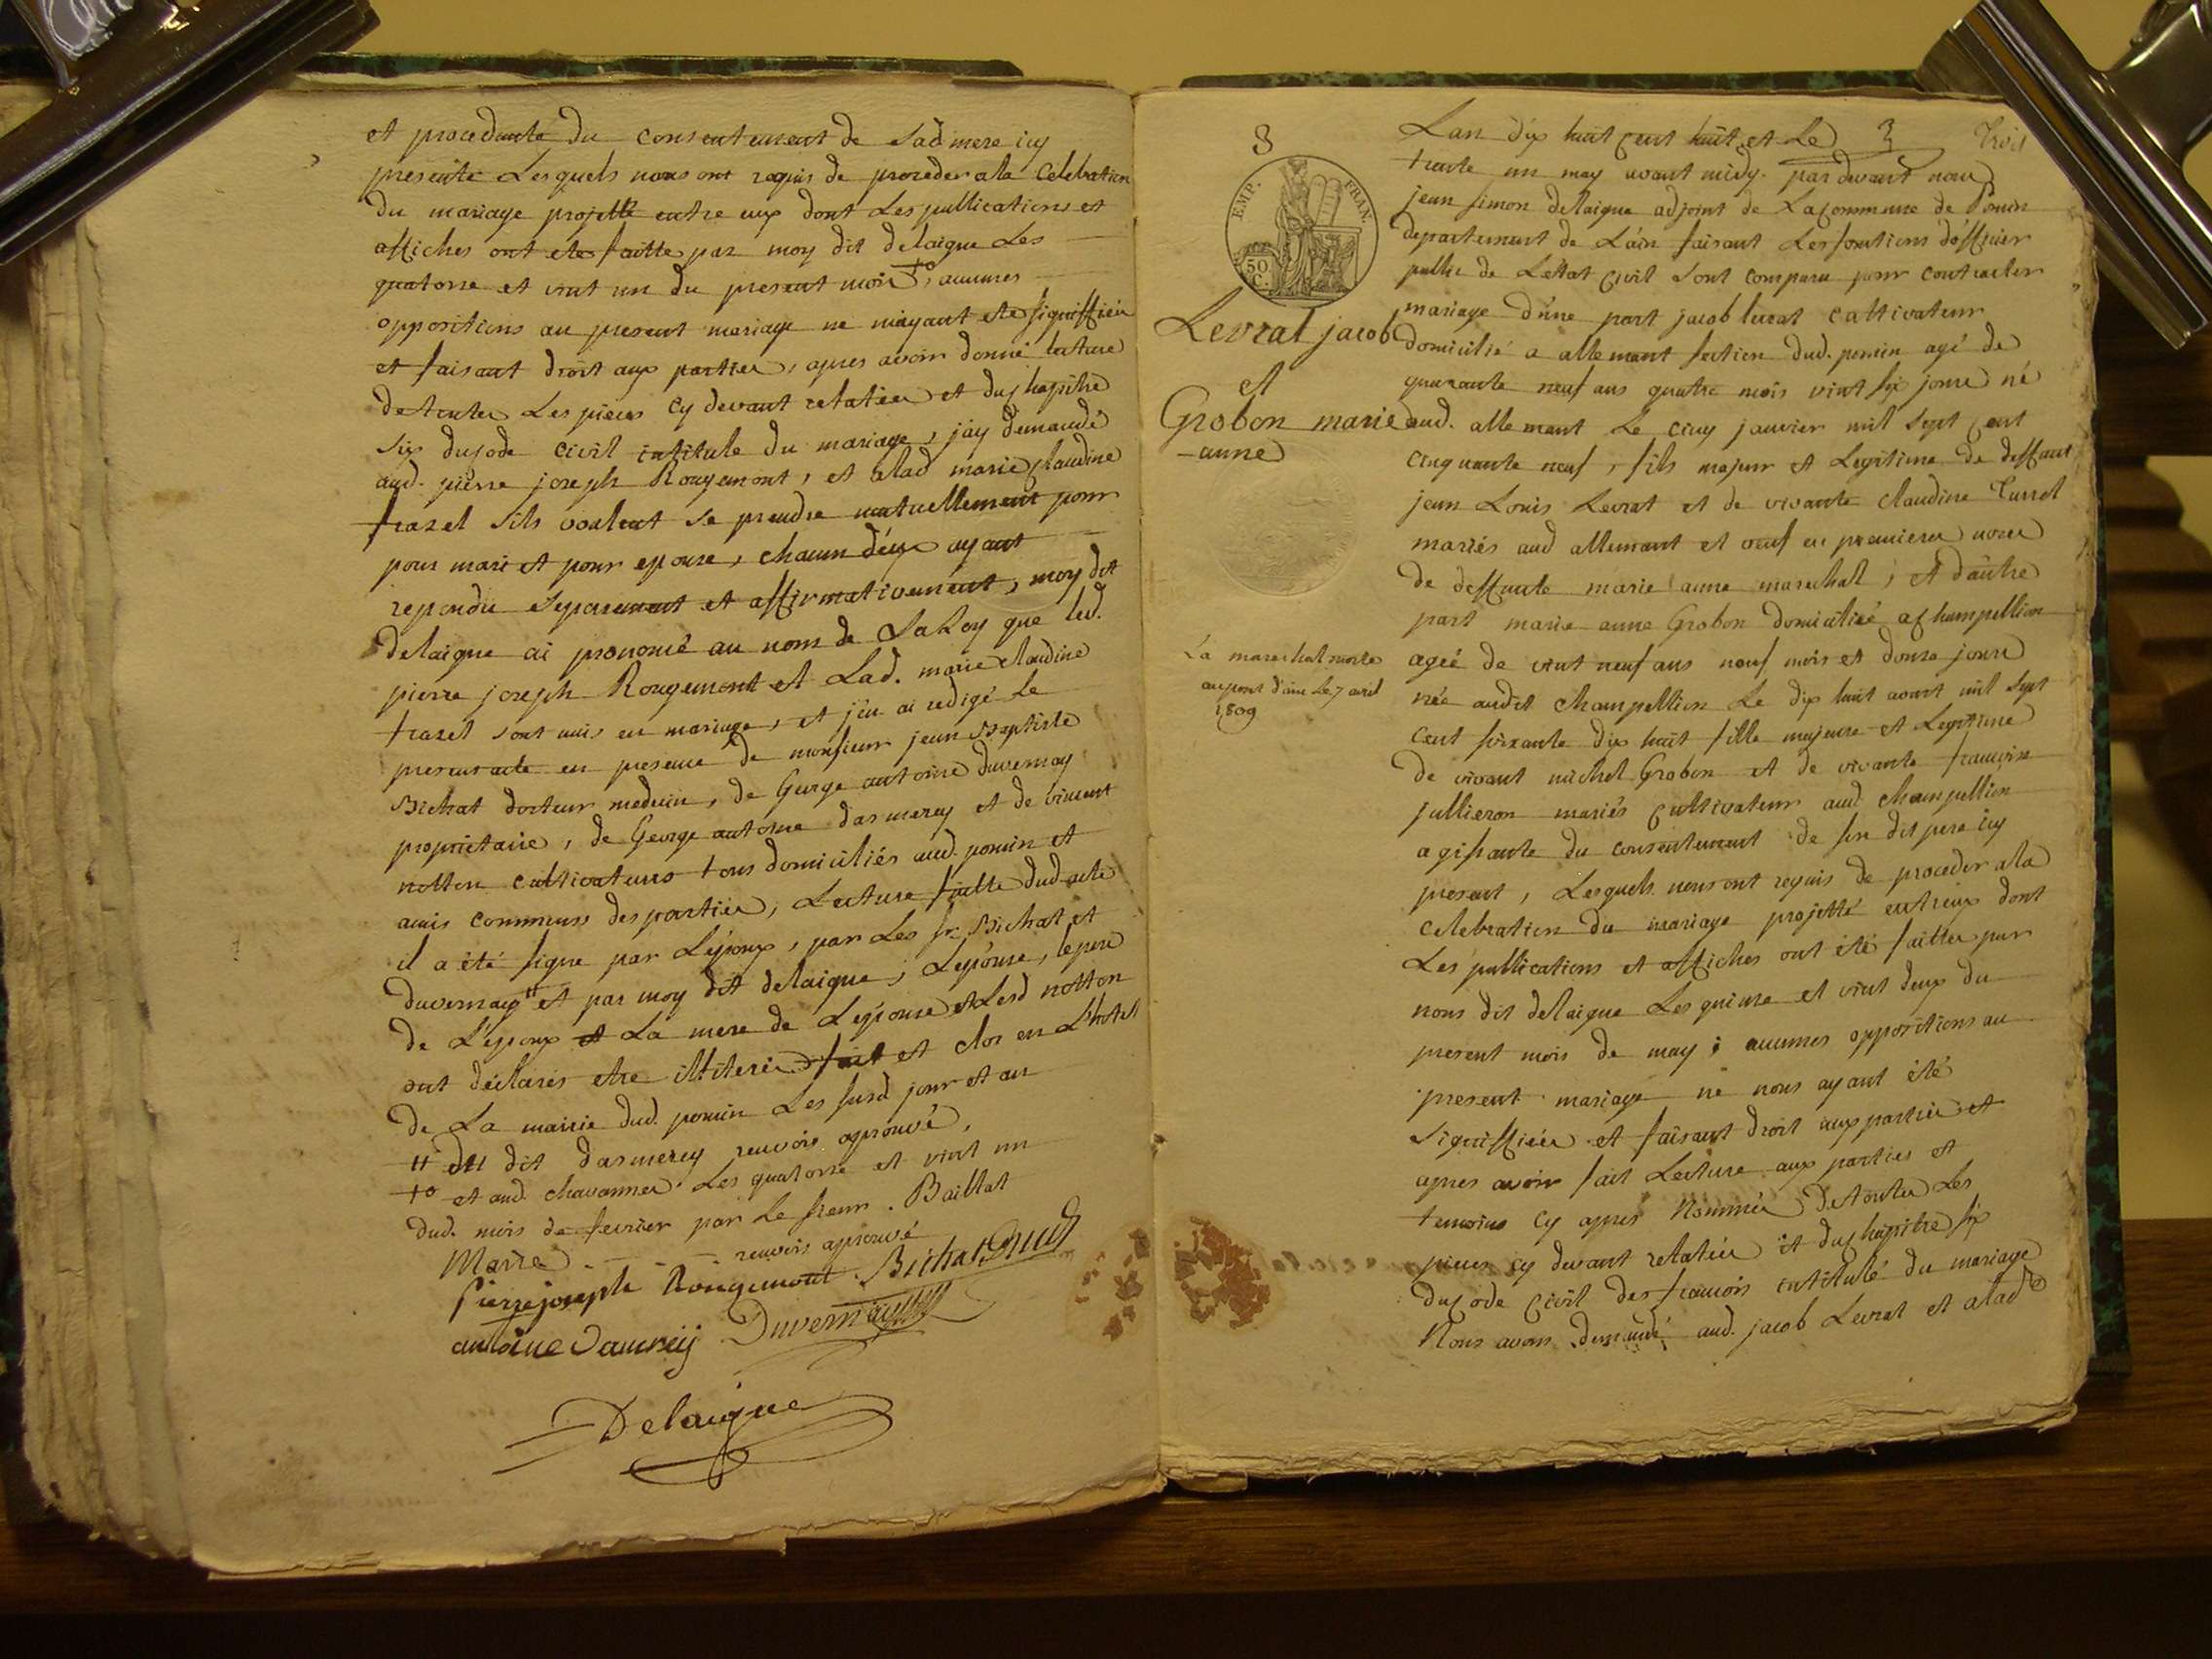 et procedante du consentement de sad mere icy
presente Lesquels nous ont requis de proceder ala Celebration
du mariage projetté entre eux dont Les publications et
affiches ont ete faitte par moy dit delaigue Les
quatorse et vint un du present mois +o, aucunes
oppositions au present mariage ne m'ayant ete signiffiées
et faisant droit aux parties, apres avoir donné lecture
de toutes Les pieces cy devant relatées et du chapitre
six du code civil intitule du mariage, j'ay demandé
aud. pierre joseph Rougemont, et alad marie claudine
frazel sils voulent se prendre mutuellement pour
pour mari et pour epouse, chacun d'eux ayant
repondu separement et affirmativement, moy dit
delaigue ai prononcé au nom de La Loy que led.
pierre joseph Rougemont et Lad. marie claudine
frazel sont unis en mariage, et j'en ai redigé le
present acte en presence de monsieur jean Baptiste
Bichat docteur medecin, de George antoine duvernay
propriétaire, de George antoine dasmerey et de vincent
notton cultivateurs tous domiciliés aud. poncin et
amis communs des parties, Lecture faitte dud acte
il a été signe par L'époux, par Les sr. Bichat et
duvernay # et par moy dit delaigue, L'épouse, le pere
de L'époux et La mere de L'épouse et Led notton
ont déclarés etre illiterés fait et clos en L'hotel
de La mairie dud. poncin Les susd jour et an
# du dit dasmerey renvoi aprouvé,
+o et aud. chavannes Les quatorse et vint un
dud. mois de fevrier par le sieur. Baillat
Maire - - - renvois aprouvé
pierre joseph Rougemont Bichat
antoine Damerey Duvernay
Delaigue
3
EMP. FRAN.
50 C.
Levrat jacob
et
Grobon marie
-anne
La marechal morte
au pont d'ain Le 7 avril
1809
Lan dix huit cent huit et Le 3 Trois
trente un may avant midy. par devant nous
jean simon delaigue adjoint de La commune de Poncin
departement de L'ain faisant Les fonctions d'officier
public de L'état civil sont comparu pour contracter
mariage d'une part jacob levrat cultivateur
domicilié a allemant section dud. poncin agé de
quarante neuf ans quatre mois vint six jours né
aud. allemant Le cinq janvier mil sept cent
cinquante neuf, fils majeur et Legitime de deffunt
jean Louis Levrat et de vivante claudine Turrel
mariés aud allemant et veuf en premieres noces
de deffunte marie anne marechal, et d'autre
part marie anne Grobon domiciliée a champellion
agée de vint neuf ans neuf mois et douse jours
née audit champellion Le dix huit aoust mil sept
cent soixante dix huit fille majeure et Legitime
de vivant michel Grobon et de vivante francoise
jullieron mariés cultivateur aud. champellion
agissante du consentement de son dit pere icy
present, Lesquels nous ont requis de proceder ala
celebration du mariage projetté entreux dont
Les publications et affiches ont été faittes par
nous dit delaigue Les quinse et vint deux du
present mois de may; aucunes oppositions au
present mariage ne nous ayant été
signiffiées et faisant droit aux parties et
apres avoir fait Lecture aux parties et
temoins cy apres Nommés de toutes Les
pieces cy devant relatées et du chapitre six
du code civil des francois intitulé du mariage
Nous avons demandé aud. jacob Levrat et alad